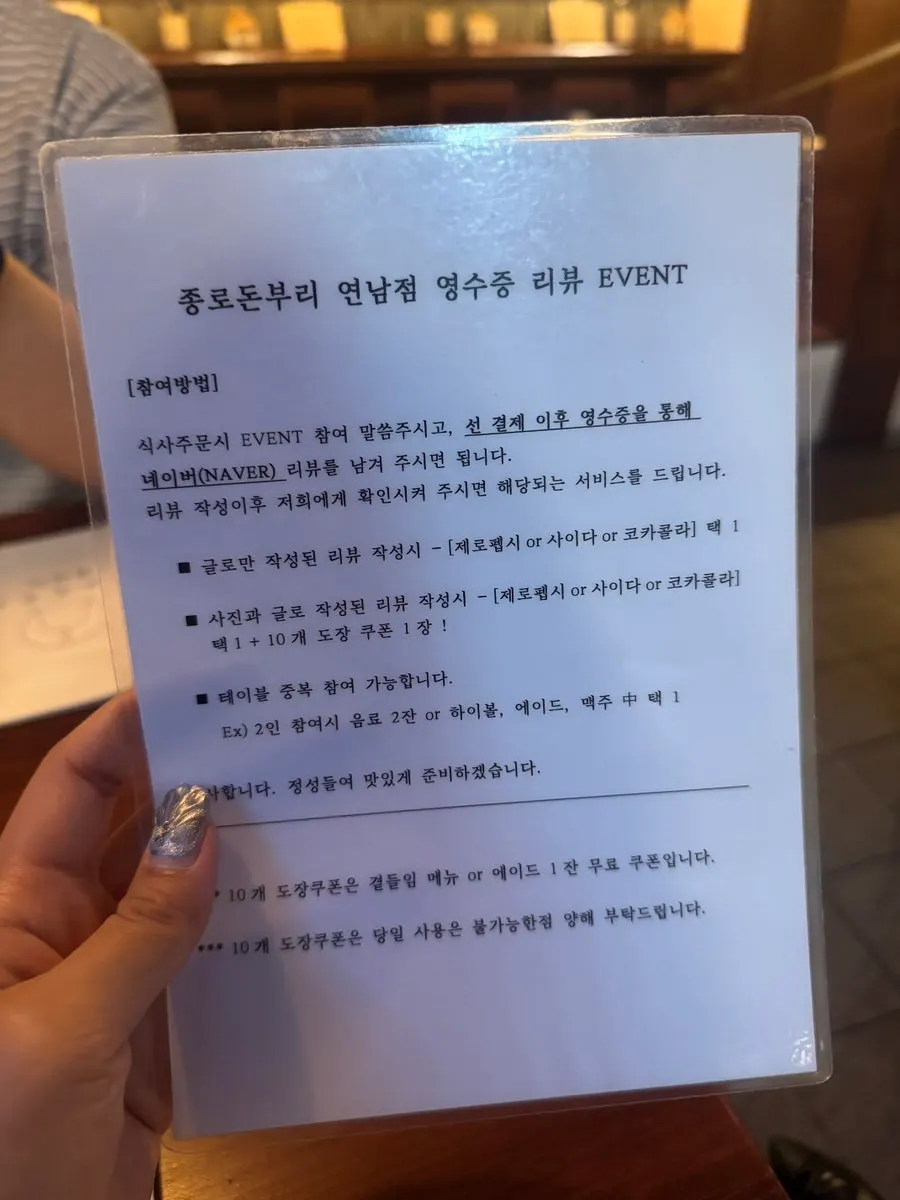 종로돈부리 연남점 영수증 리뷰 EVENT
[참여방법]
식사주문시 EVENT 참여 말씀주시고, 선 결제 이후 영수증을 통해
네이버(NAVER) 리뷰를 남겨 주시면 됩니다.
리뷰 작성이후 저희에게 확인시켜 주시면 해당되는 서비스를 드립니다.
■ 글로만 작성된 리뷰 작성시 - [제로펩시 or 사이다 or 코카콜라] 택 1
■ 사진과 글로 작성된 리뷰 작성시 - [제로펩시 or 사이다 or 코카콜라]
택 1 + 10 개 도장 쿠폰 1 장 !
■ 테이블 중복 참여 가능합니다.
Ex) 2인 참여시 음료 2잔 or 하이볼, 에이드, 맥주 中 택 1
사합니다. 정성들여 맛있게 준비하겠습니다.
* 10 개 도장쿠폰은 곁들임 메뉴 or 에이드 1 잔 무료 쿠폰입니다.
*** 10 개 도장쿠폰은 당일 사용은 불가능한점 양해 부탁드립니다.